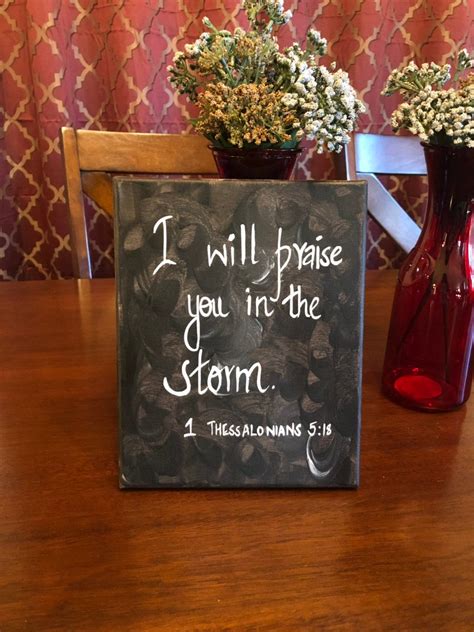 I will praise
you in the
storm.
1 THESSALONIANS 5:18